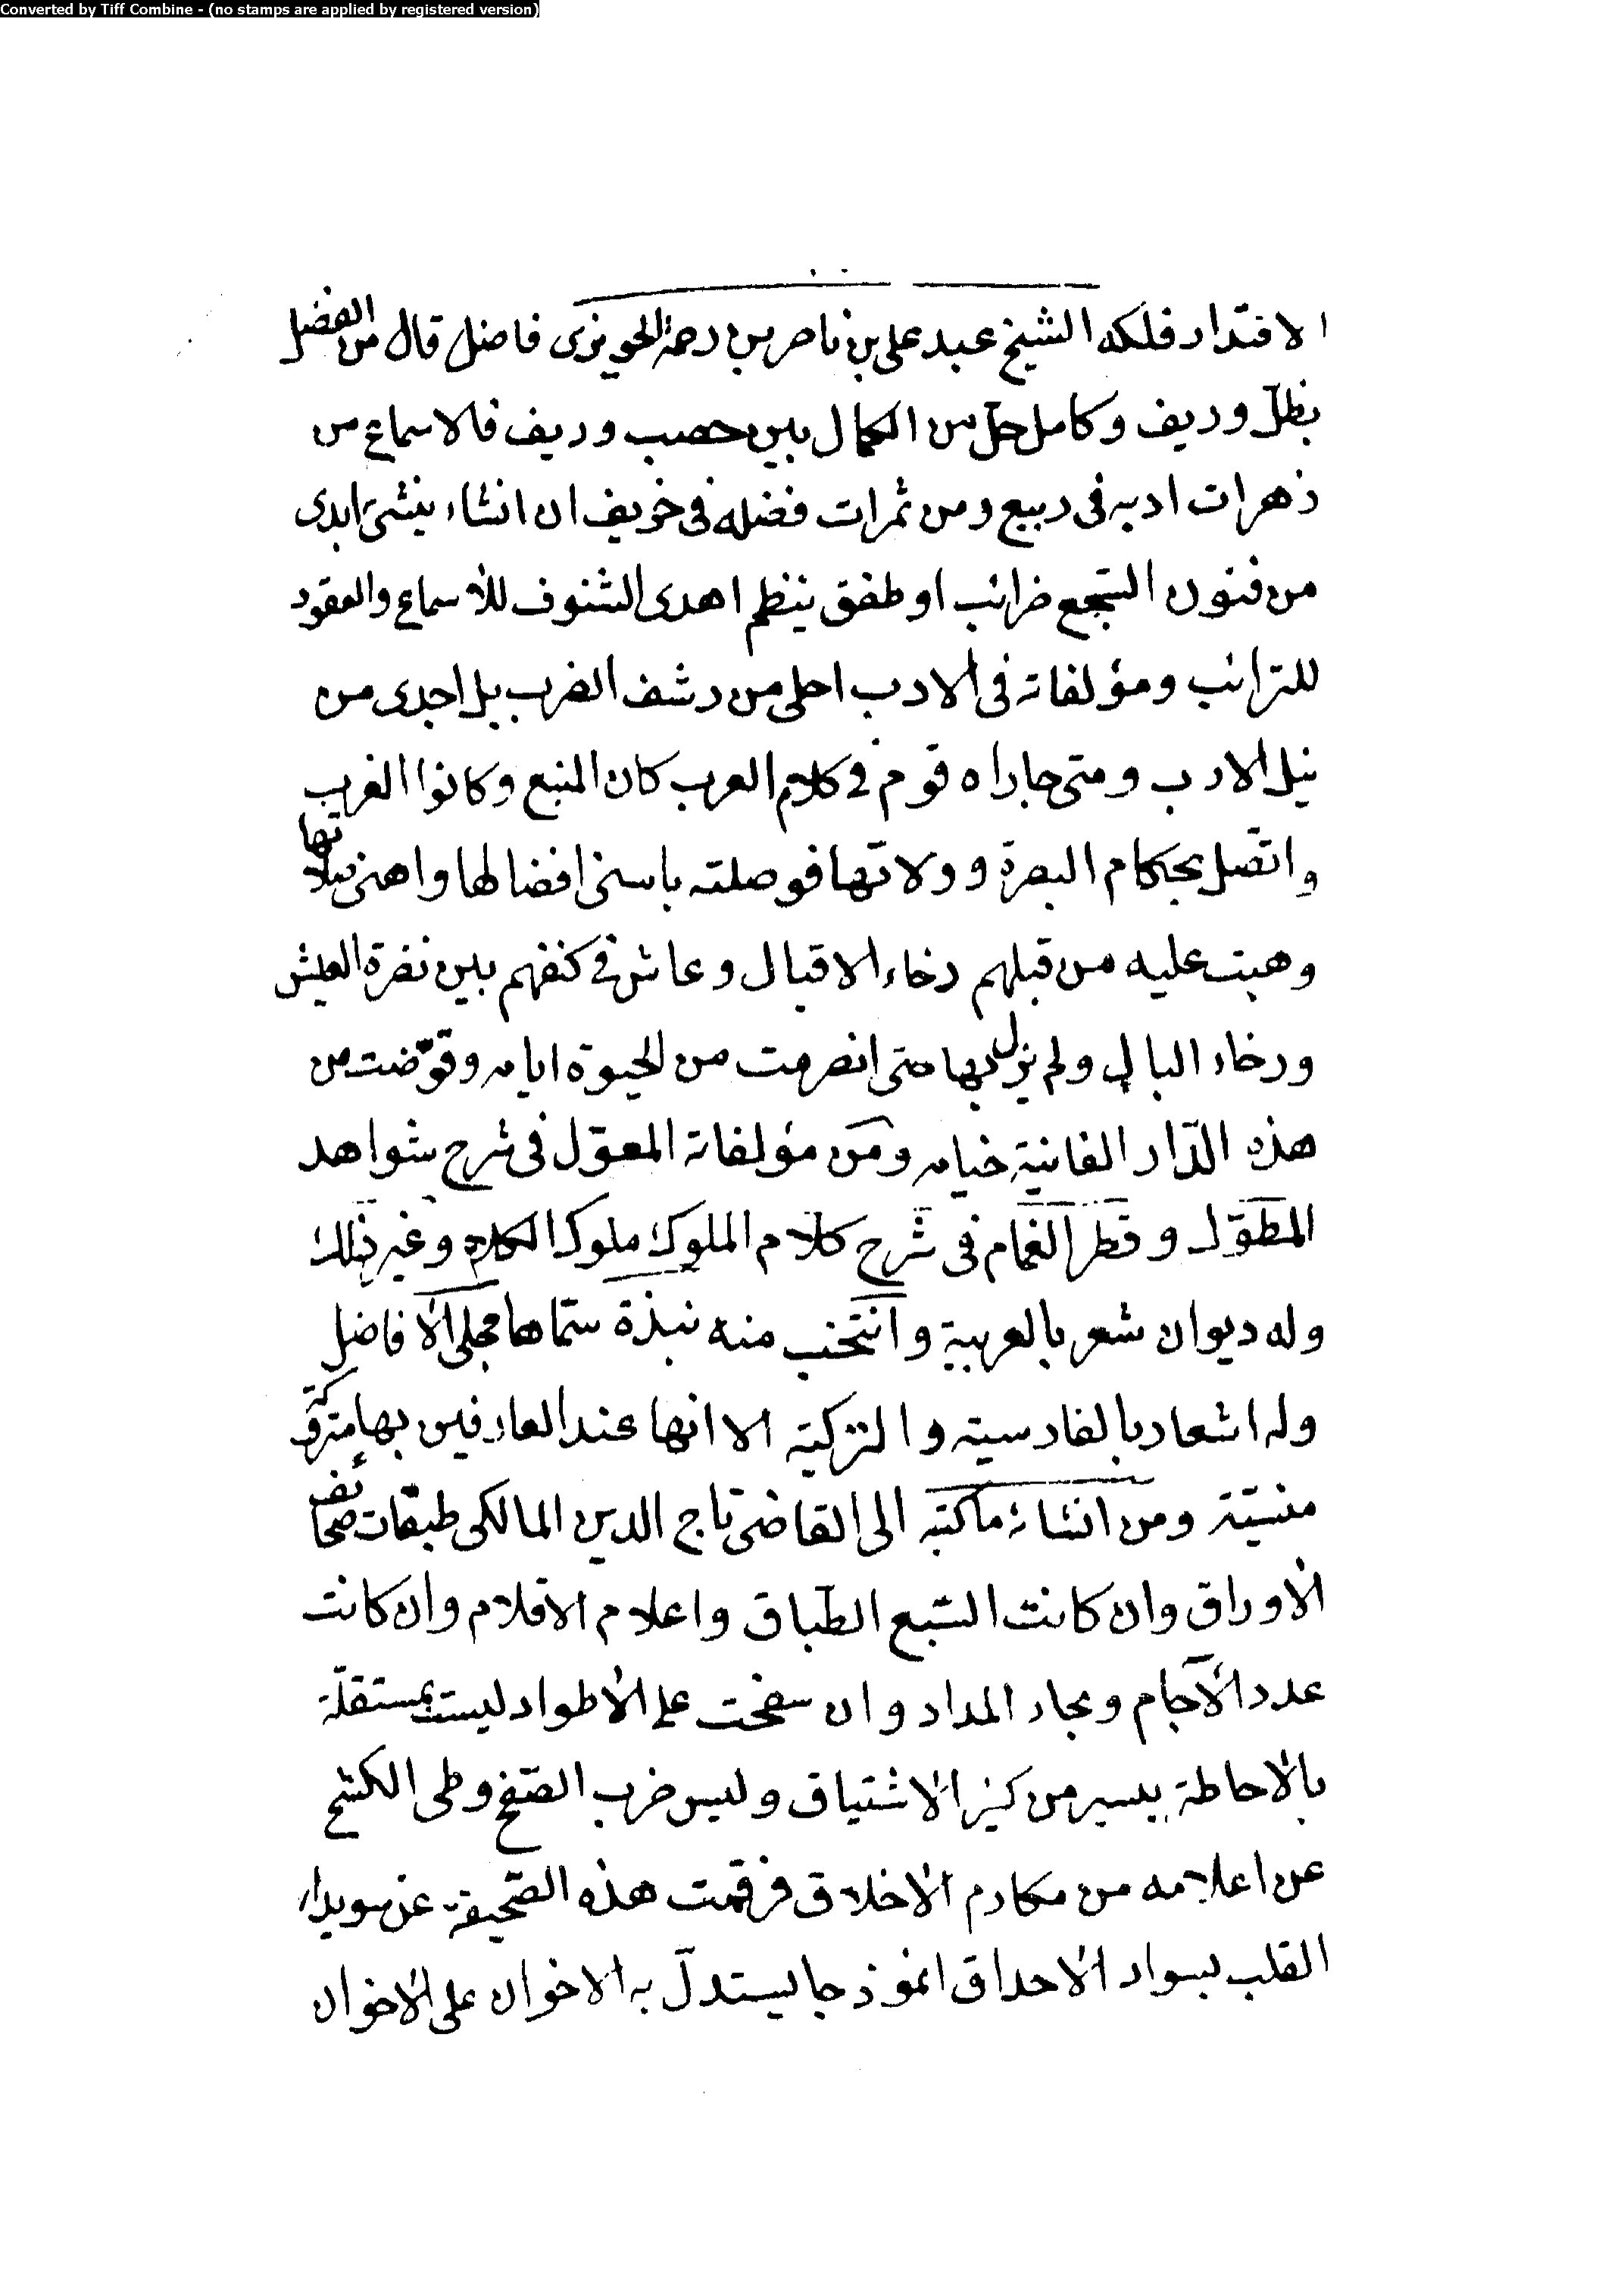 Converted by Tiff Combine - (no stamps are applied by registered version)
الاقتدار فلكه الشيخ عبد على بن ناصر بن رحمة الحويزى فاضل قال من الفضل
بظلّ وريف وكامل حلّ من الكمال بين خصب وريف فالاسماع من
زهرات ادبه فى ربيع ومن ثمرات فضله فى خريف ان انشاء ينشئ ابدى
من فنون السّجع ضرائب او طفق ينظم اهدى الشنوف للاسماع والعقود
للترائب ومؤلفاته فى الادب احلى من رشف الضرب بل اجدى من
نيل الارب ومتى جاراه قوم فى كلام العرب كان المنبع وكانوا الغرب
واتّصل بحكام البصرة وولاتها فوصلته باسنى افضالها واهنى صلاتها
وهبت عليه من قبلهم رخاء الاقبال وعاش فى كنفهم بين نضرة العيش
ورخاء البال ولم يزل بها حتى انصرمت من الحيوة ايامه وقوّضت من
هذه الدّار الفانية خيامه ومن مؤلفاته المعوّل فى شرح شواهد
المطوّل وقطر الغمام فى شرح كلام الملوك ملوك الكلام وغير ذلك
وله ديوان شعر بالعربية وانتخب منه نبذة سمّاها مجلى الافاضل
وله اشعار بالفارسية والتركيّة الا انها عند العارفين بها متروكة
منسيّة ومن انشائه ما كتبه الى القاضى تاج الدين المالكى طبقات صحائف
الاوراق وان كانت السّبع الطّباق واعلام الاقلام وان كانت
عدد الآجام وبحار المداد وان سفحت على الاطواد ليست بمستقلّة
بالاحاطة بيسير من كثير الاشتياق وليس ضرب الصّفح وطى الكشح
عن اعلامه من مكارم الاخلاق فرقمت هذه الصّحيفة عن سويداء
القلب بسواد الاحداق انموذجا ليستدلّ به الاخوان على الاخوان